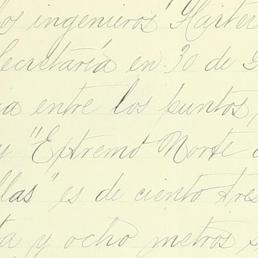 los ingenieros Harter
Secretaría en 30 de
ia entre los puntos
y "Extremo Norte
llas" es de ciento tres
ta y ocho metros